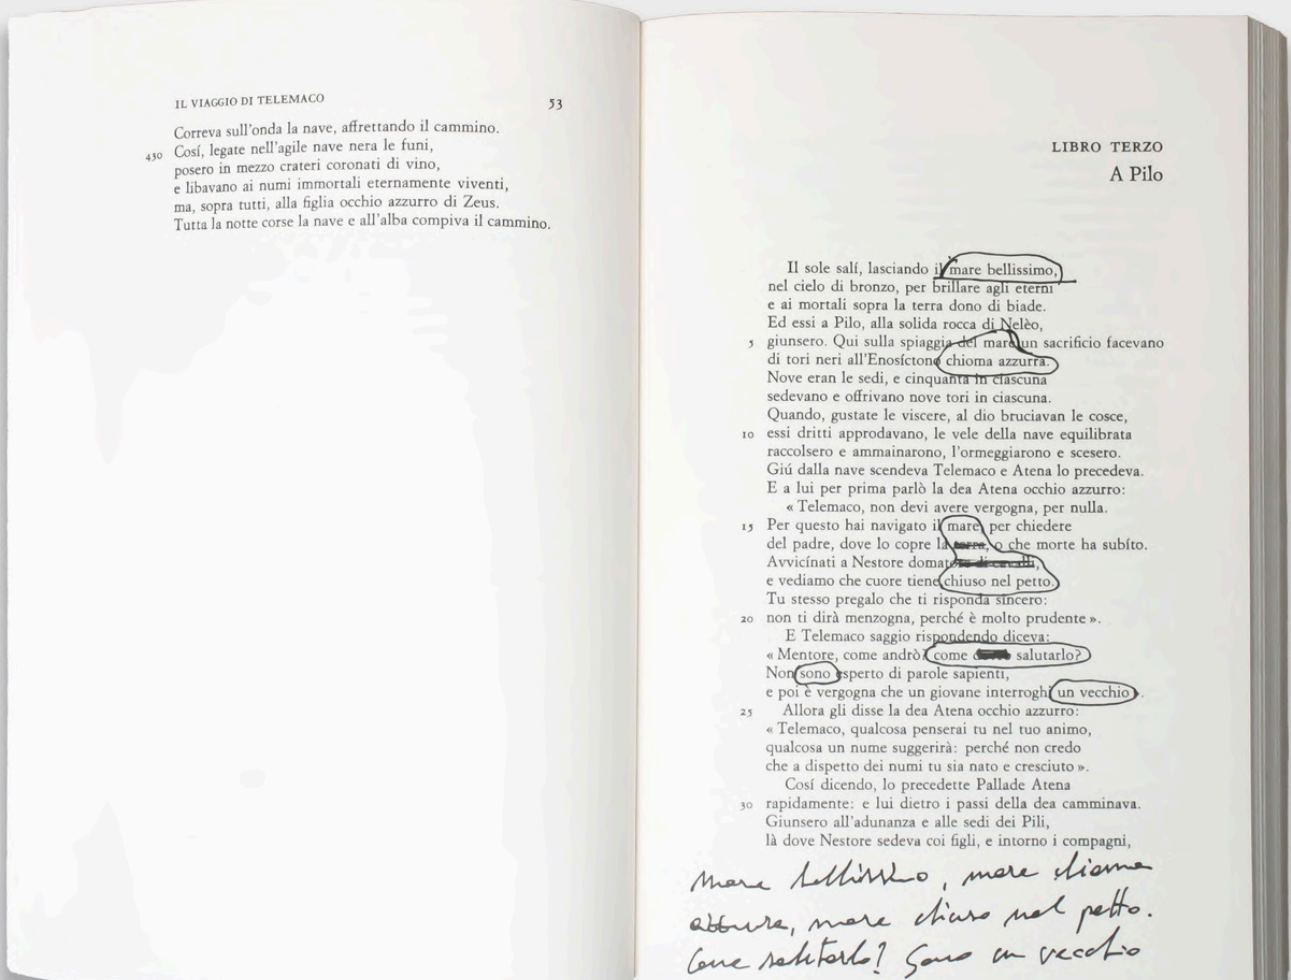 IL VIAGGIO DI TELEMACO 53
Correva sull'onda la nave, affrettando il cammino.
430 Cosí, legate nell'agile nave nera le funi,
posero in mezzo crateri coronati di vino,
e libavano ai numi immortali eternamente viventi,
ma, sopra tutti, alla figlia occhio azzurro di Zeus.
Tutta la notte corse la nave e all'alba compiva il cammino.
LIBRO TERZO
A Pilo
Il sole salí, lasciando il mare bellissimo,
nel cielo di bronzo, per brillare agli eterni
e ai mortali sopra la terra dono di biade.
Ed essi a Pilo, alla solida rocca di Nelèo,
5 giunsero. Qui sulla spiaggia del mare un sacrificio facevano
di tori neri all'Enosíctono chioma azzurra.
Nove eran le sedi, e cinquanta in ciascuna
sedevano e offrivano nove tori in ciascuna.
Quando, gustate le viscere, al dio bruciavan le cosce,
10 essi dritti approdavano, le vele della nave equilibrata
raccolsero e ammainarono, l'ormeggiarono e scesero.
Giú dalla nave scendeva Telemaco e Atena lo precedeva.
E a lui per prima parlò la dea Atena occhio azzurro:
« Telemaco, non devi avere vergogna, per nulla.
15 Per questo hai navigato il mare, per chiedere
del padre, dove lo copre la terra, o che morte ha subíto.
Avvicínati a Nestore domatore di cavalli,
e vediamo che cuore tiene chiuso nel petto.
Tu stesso pregalo che ti risponda sincero:
20 non ti dirà menzogna, perché è molto prudente ».
E Telemaco saggio rispondendo diceva:
« Mentore, come andrò? come salutarlo?
Non sono esperto di parole sapienti,
e poi è vergogna che un giovane interroghi un vecchio ».
25 Allora gli disse la dea Atena occhio azzurro:
« Telemaco, qualcosa penserai tu nel tuo animo,
qualcosa un nume suggerirà: perché non credo
che a dispetto dei numi tu sia nato e cresciuto ».
Cosí dicendo, lo precedette Pallade Atena
30 rapidamente: e lui dietro i passi della dea camminava.
Giunsero all'adunanza e alle sedi dei Pili,
là dove Nestore sedeva coi figli, e intorno i compagni,
mare bellissimo, mare chioma
azzurra, mare chiuso nel petto.
Come salutarlo? Sono un vecchio